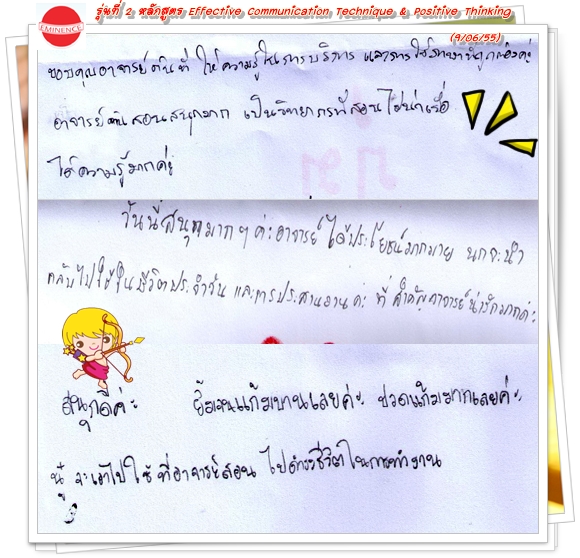 รุ่นที่ 2 หลักสูตร Effective Communication Technique & Positive Thinking
(9/06/55)
EMINENCE
ขอบคุณอาจารย์ต้นที่ ให้ความรู้ในการบริการ และการใช้ภาษาที่ถูกต้องค่ะ
อาจารย์ต้นสอนสนุกมาก เป็นวิทยากรที่สอนไม่น่าเบื่อ
ได้ความรู้มากค่ะ
วันนี้สนุกมากๆค่ะอาจารย์ ได้ประโยชน์มากมาย นกจะนำ
กลับไปใช้ในชีวิตประจำวัน และการประสานงานค่ะ ที่สำคัญอาจารย์น่ารักมากค่ะ
สนุกดีค่ะ ยิ้มจนแก้มบานเลยค่ะ ปวดแก้มมากเลยค่ะ
จะเอาไปใช้ ที่อาจารย์สอน ไปดำรงชีวิตในการทำงาน